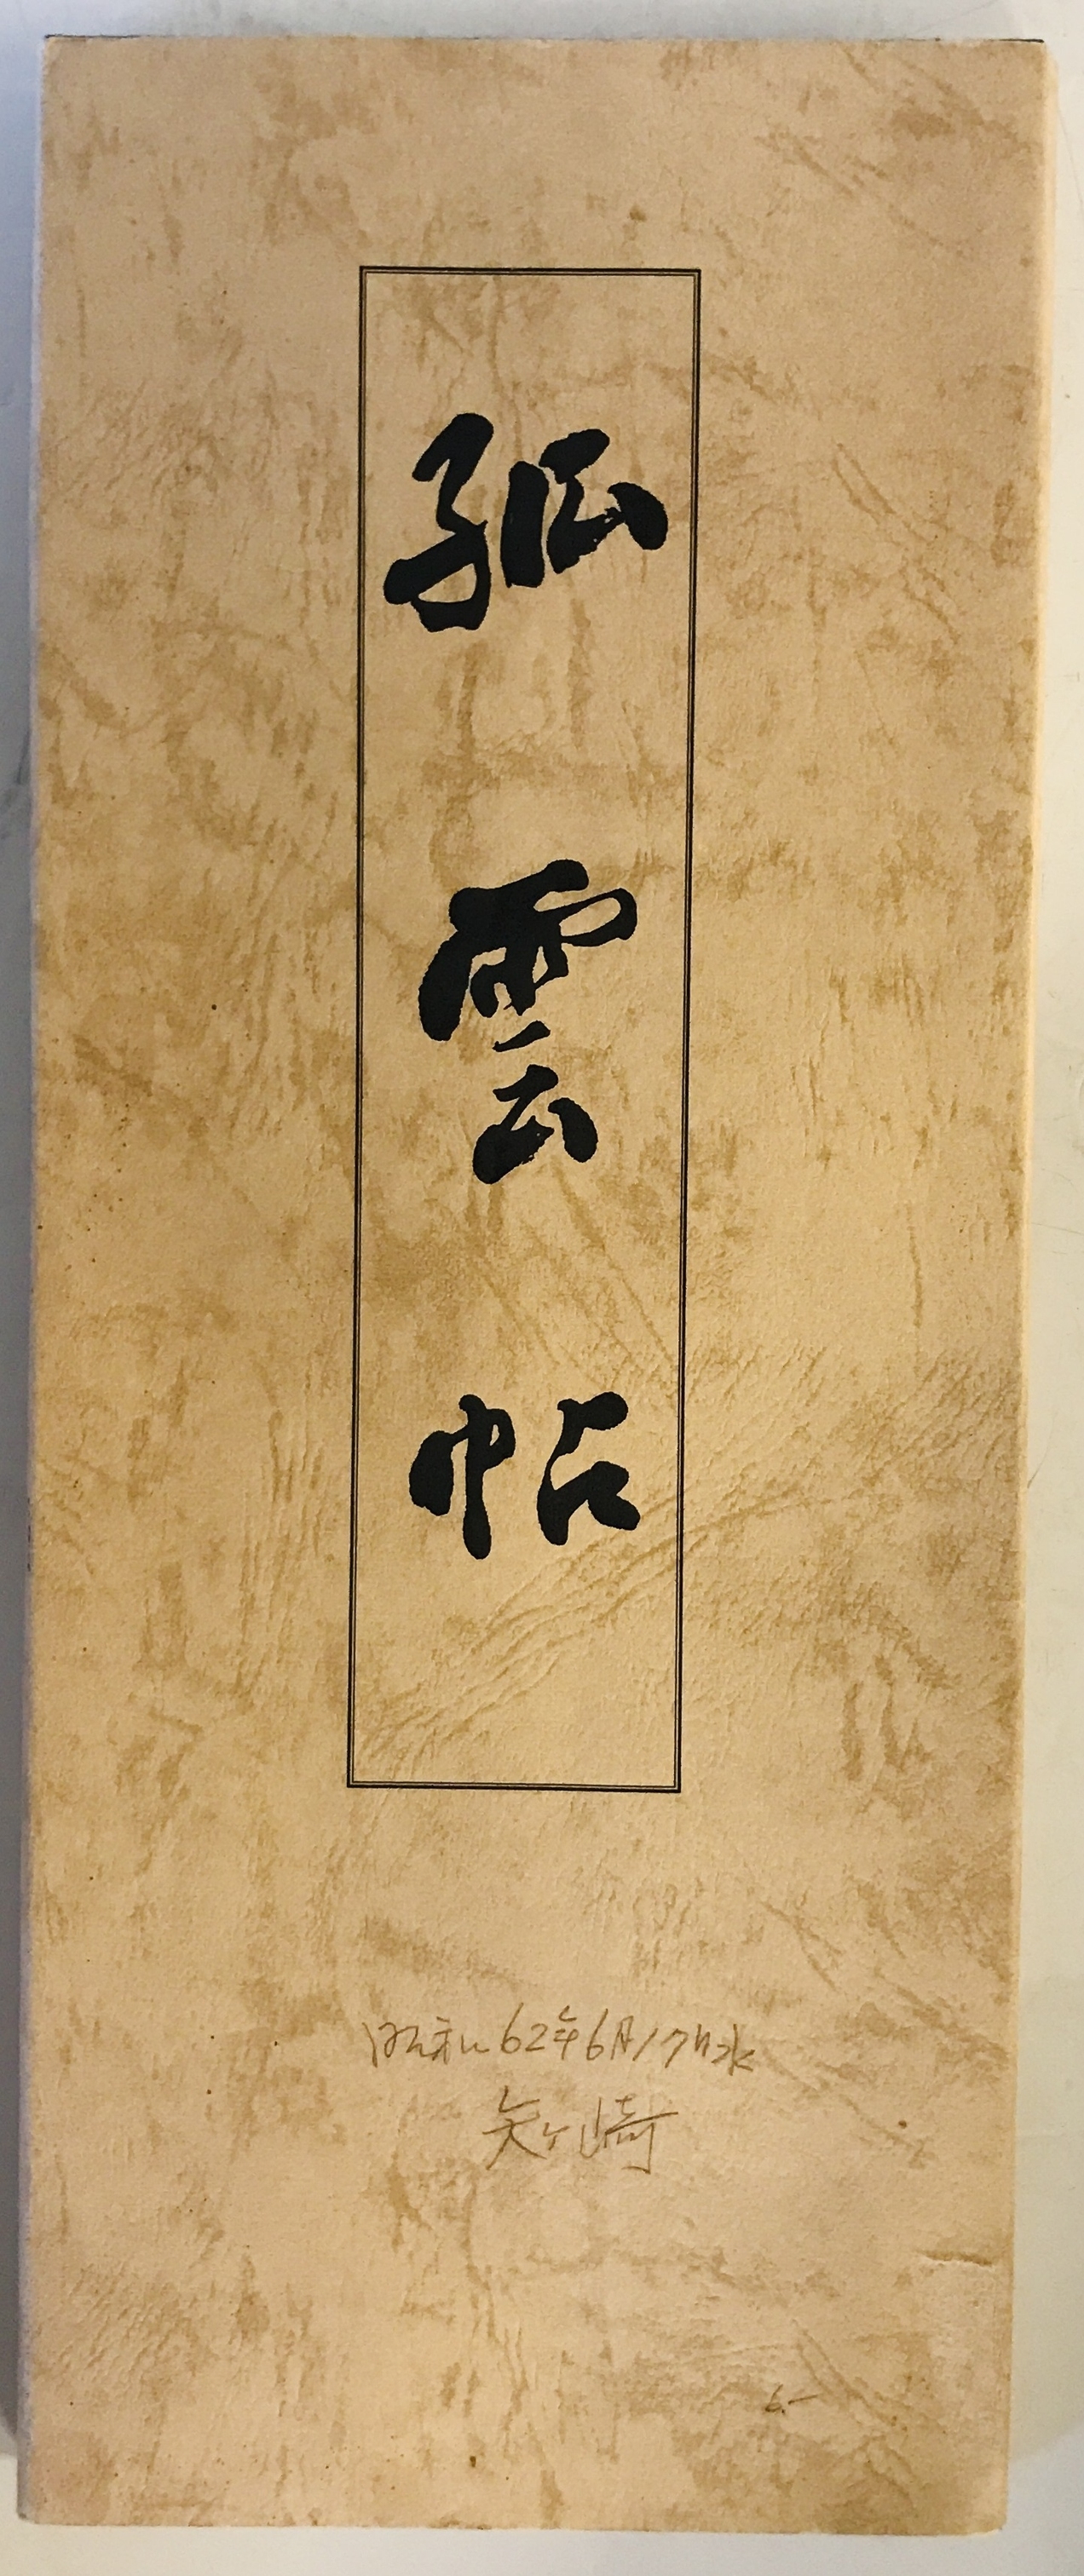 孤雲帖
昭和62年6月17日水
矢ヶ崎
6.-